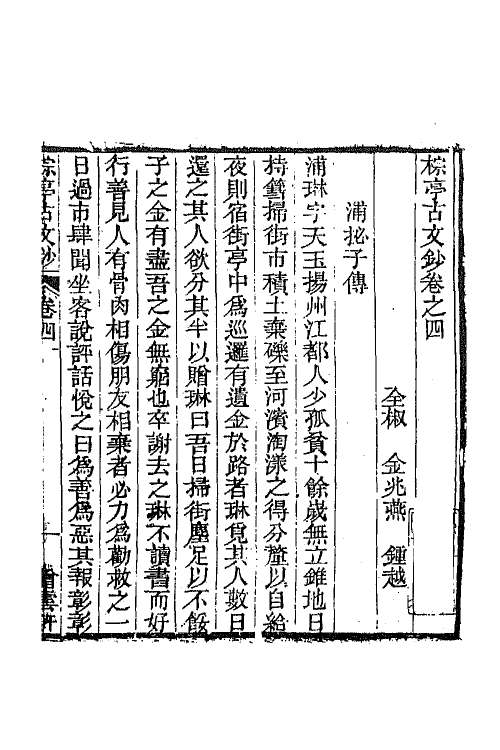 棕亭古文鈔卷之四
全椒　金兆燕　鍾越
浦㧙子傳
浦琳字天玉揚州江都人少孤貧十餘歲無立錐地日
持籯掃街市積土棄礫至河濱淘漾之得分釐以自給
夜則宿街亭中為巡邏有遺金於路者琳覓其人數日
還之其人欲分其半以贈琳曰吾日掃街塵足以不餒
子之金有盡吾之金無窮也卒謝去之琳不讀書而好
行善見人有骨肉相傷朋友相棄者必力為勸救之一
日過市肆聞坐客說評話悅之曰為善為惡其報彰彰
棕亭古文鈔　卷四